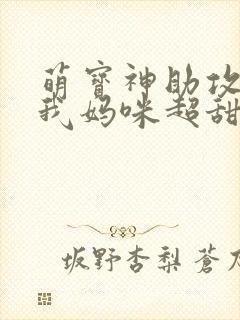 萌寳神助攻
我妈咪超甜
坂野杏梨 蒼